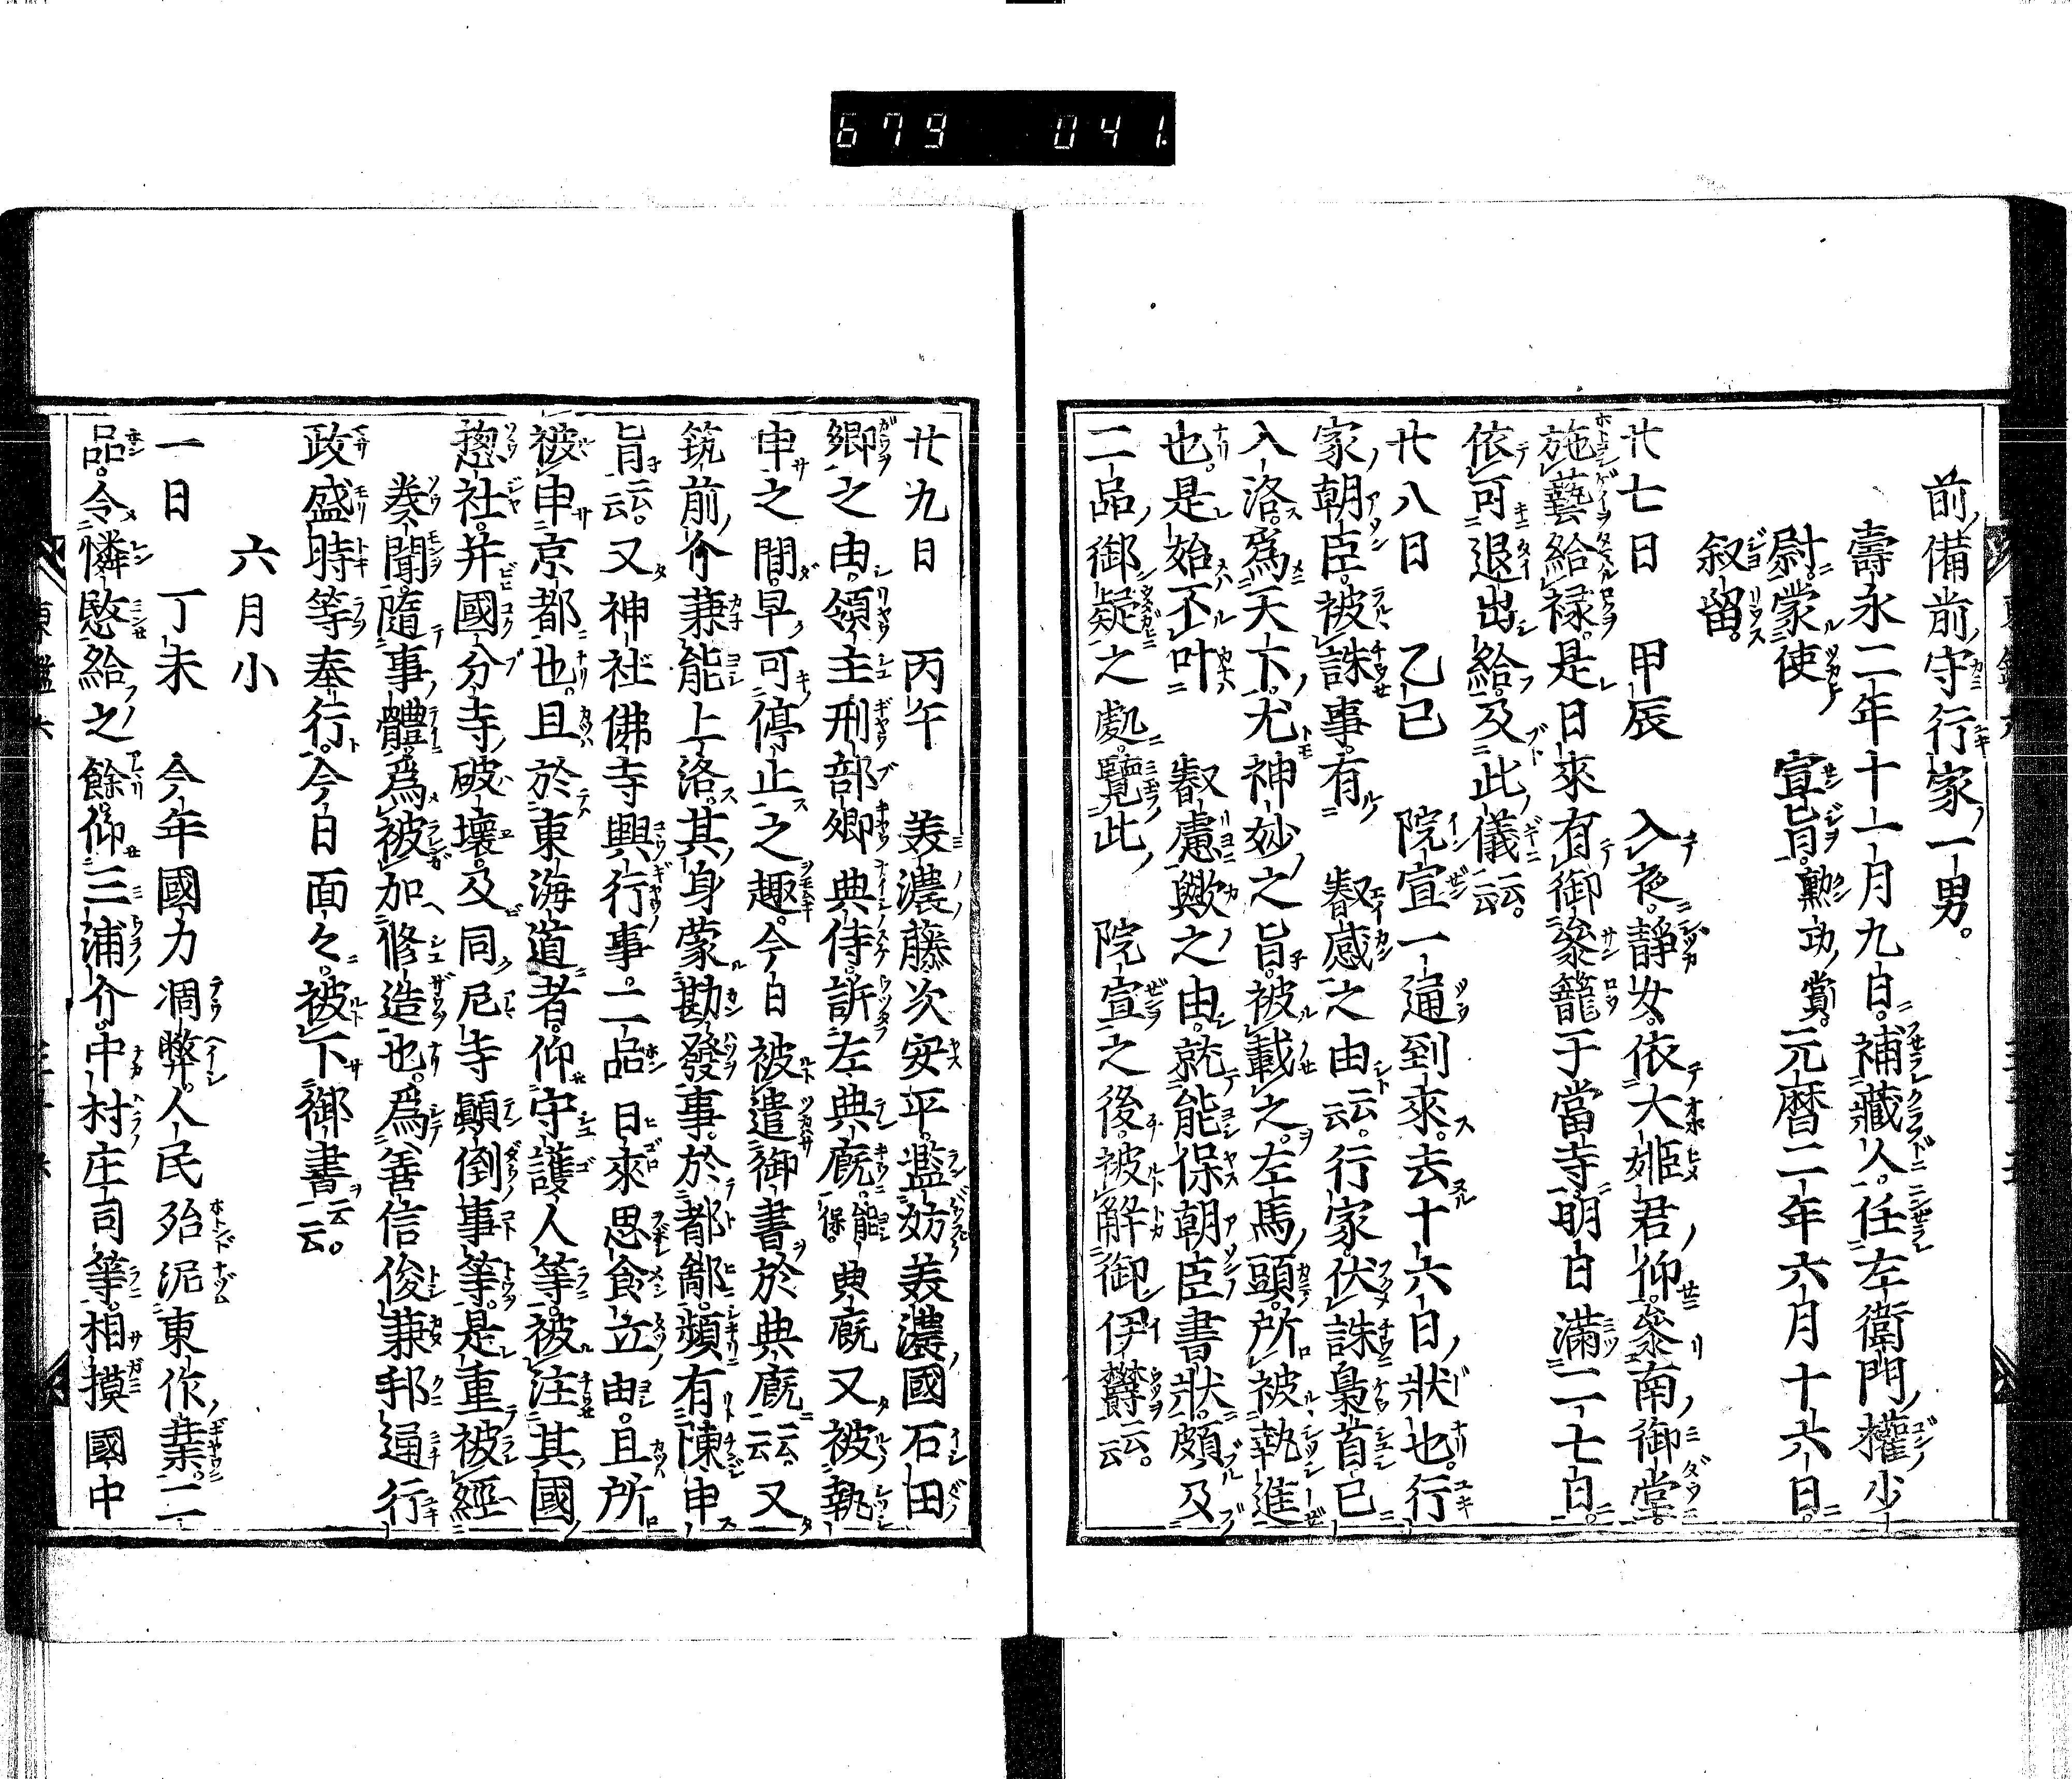 679 041.
前備前守行家一男。
壽永二年十一月九日。補藏人。任左衛門權少
尉。蒙使 宣旨。勲功賞。元暦二年六月十六日。
叙留。
廿七日 甲辰 入夜。靜女。依大姫君仰。參南御堂。
施藝給禄。是日來有御參籠于當寺。明日滿二七日。
依可退出給。及此儀云云。
廿八日 乙巳 院宣一通到來。去十六日狀也。行
家朝臣。被誅事。有 叡感之由云云。行家。伏誅梟首已
入洛。爲天下。尤神妙之旨。被載之。左馬頭。所被執進
也。是始丕叶 叡慮歟之由。就能保朝臣書狀。頗及
二品御疑之處。覽此 院宣之後。被解御伊欝云云。
廿九日 丙午 美濃藤次安平。濫妨美濃國石田
郷之由。領主刑部卿典侍。訴左典廐。能保。典廐又被執
申之間。早可停止之趣。今日被遣御書於典廐云云。又
筑前介兼能上洛。其身蒙勘發事。於都鄙。頻有陳申
旨云云。又神社佛寺興行事。二品日來思食立由。且所
被申京都也。且於東海道者。仰守護人等。被注其國
惣社。并國分寺破壞。及同尼寺顚倒事等。是重被經
奏聞。隨事體。爲被加修造也。爲善信俊兼邦通行
政盛時等奉行。今日面々。被下御書云云。
六月小
一日 丁未 今年國力凋弊。人民殆泥東作業。二
品。令憐愍給之餘。仰三浦介。中村庄司等。相摸國中